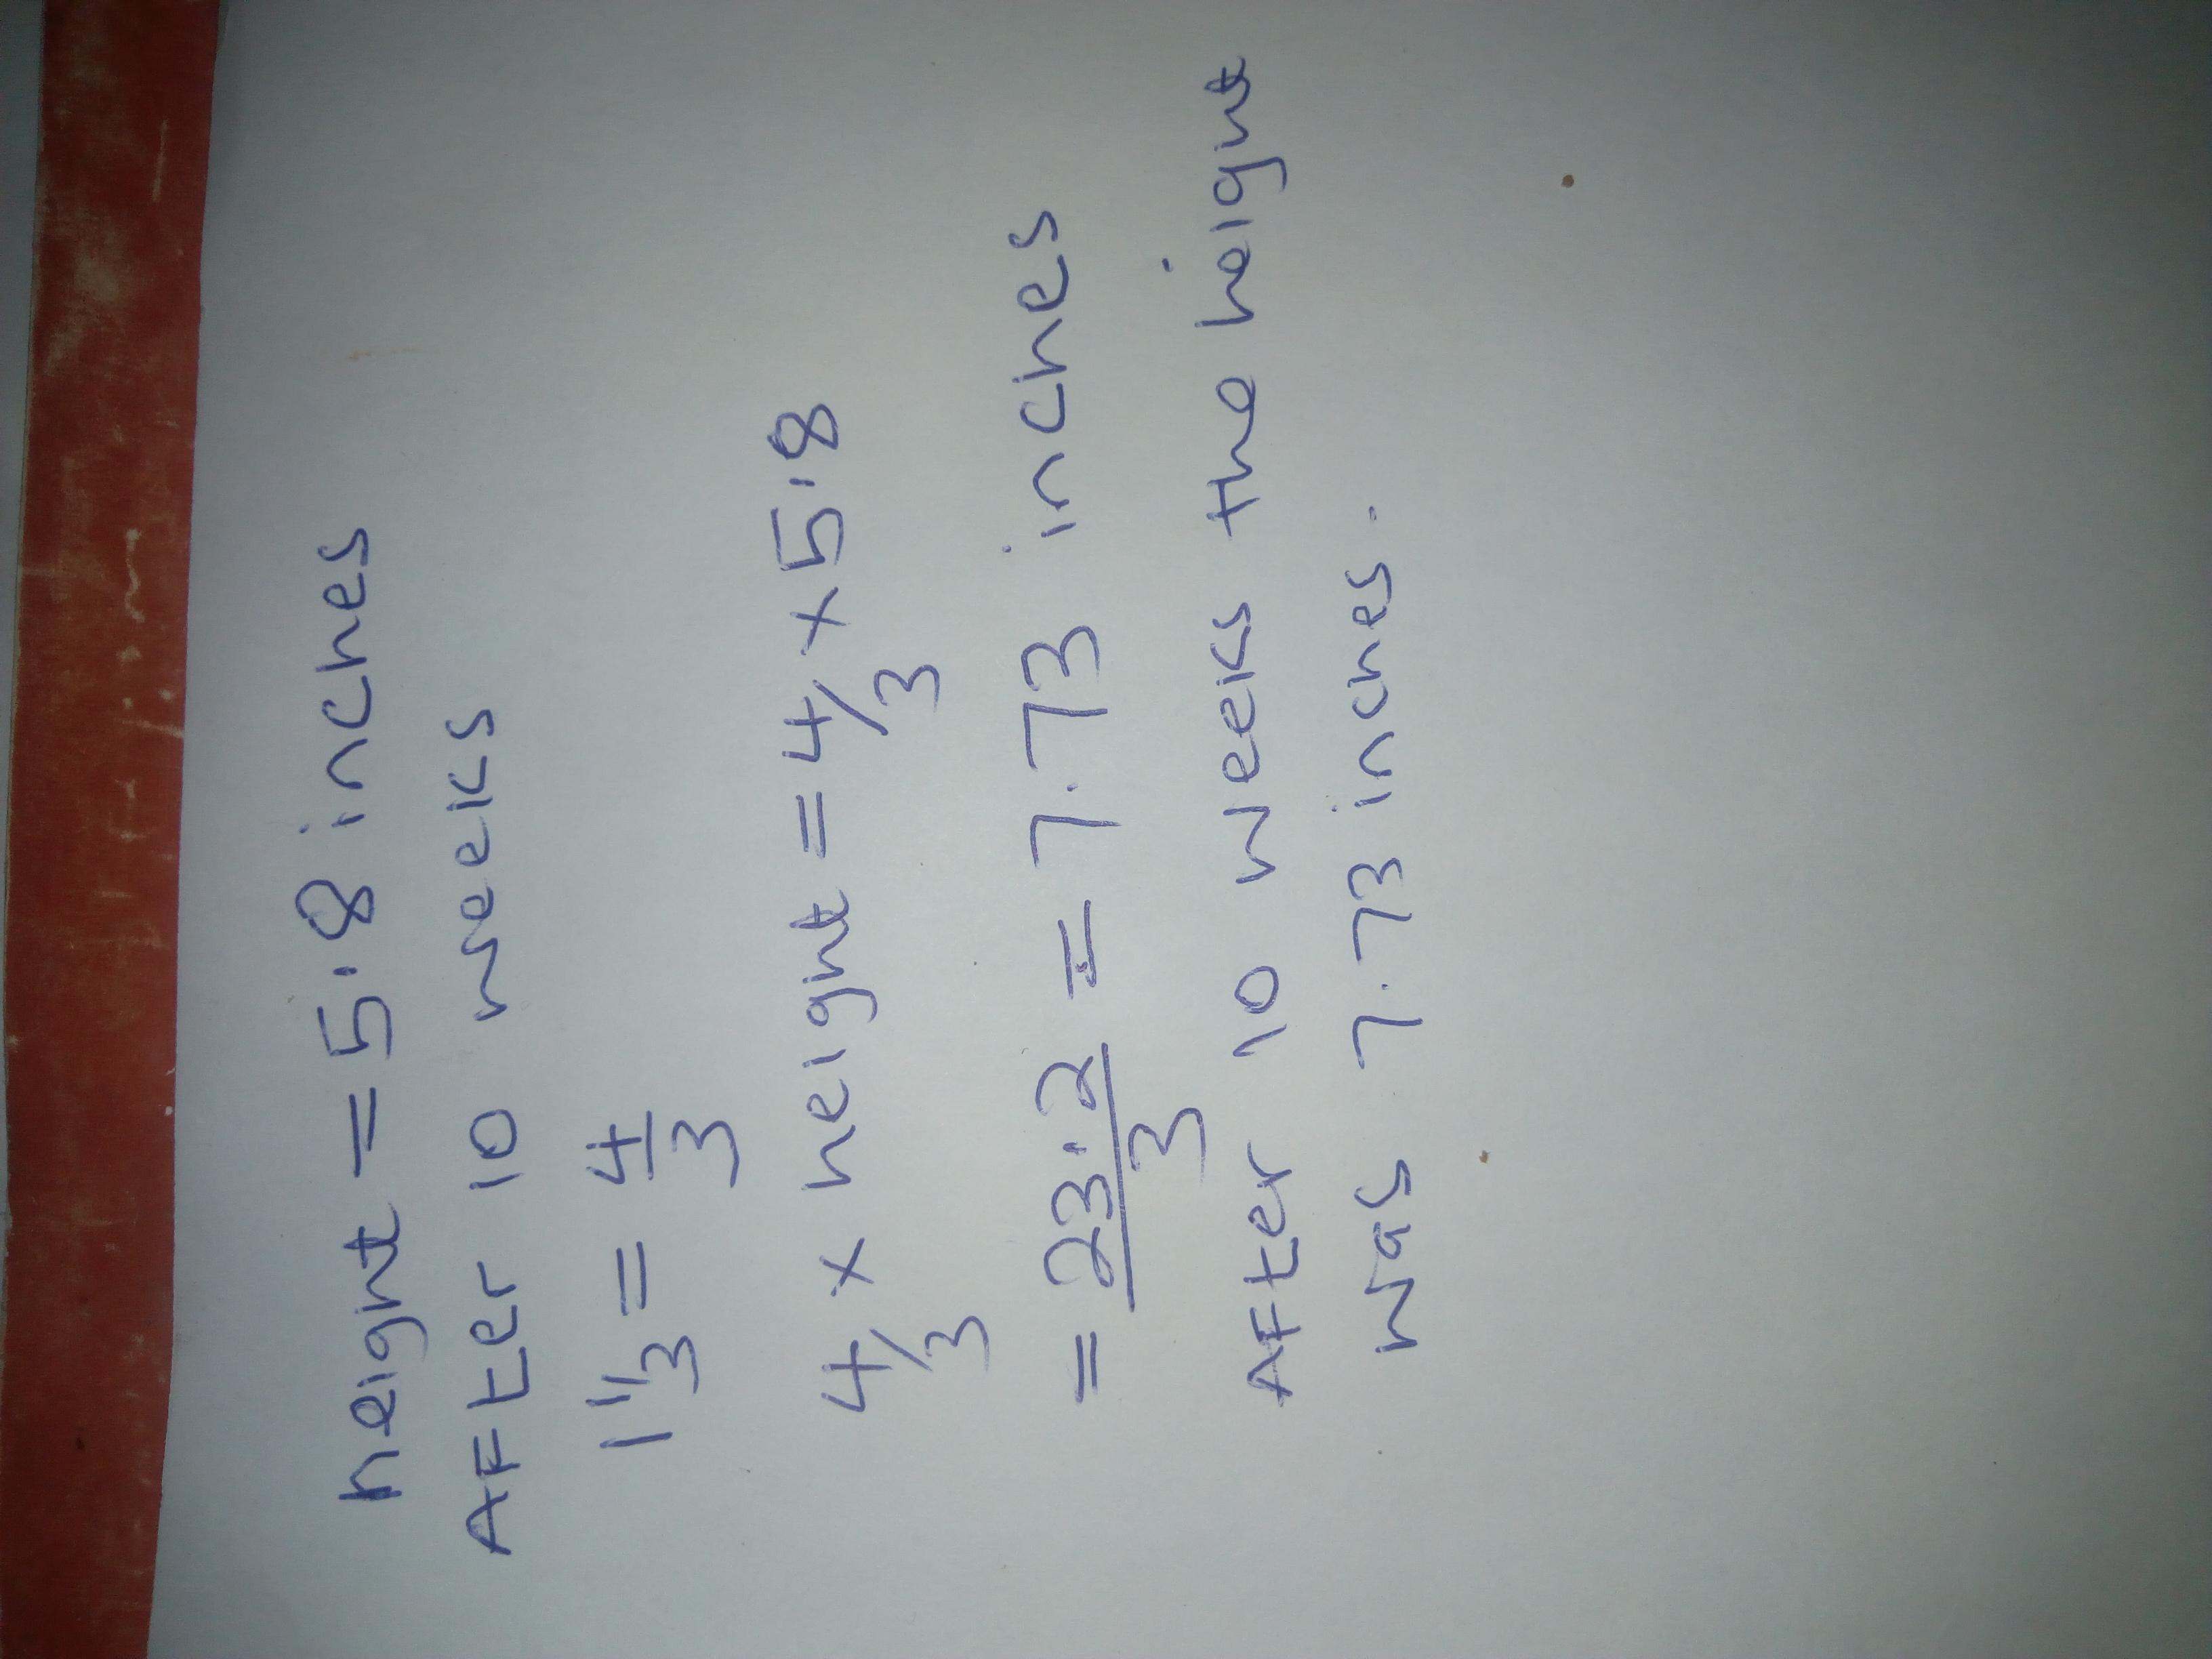 height = 5.8 inches
AFter 10 weeks
1 1/3 = 4/3
4/3 x height = 4/3 x 5.8
= 23.2/3 = = 7.73 inches
AFter 10 weeks the height
was 7.73 inches.